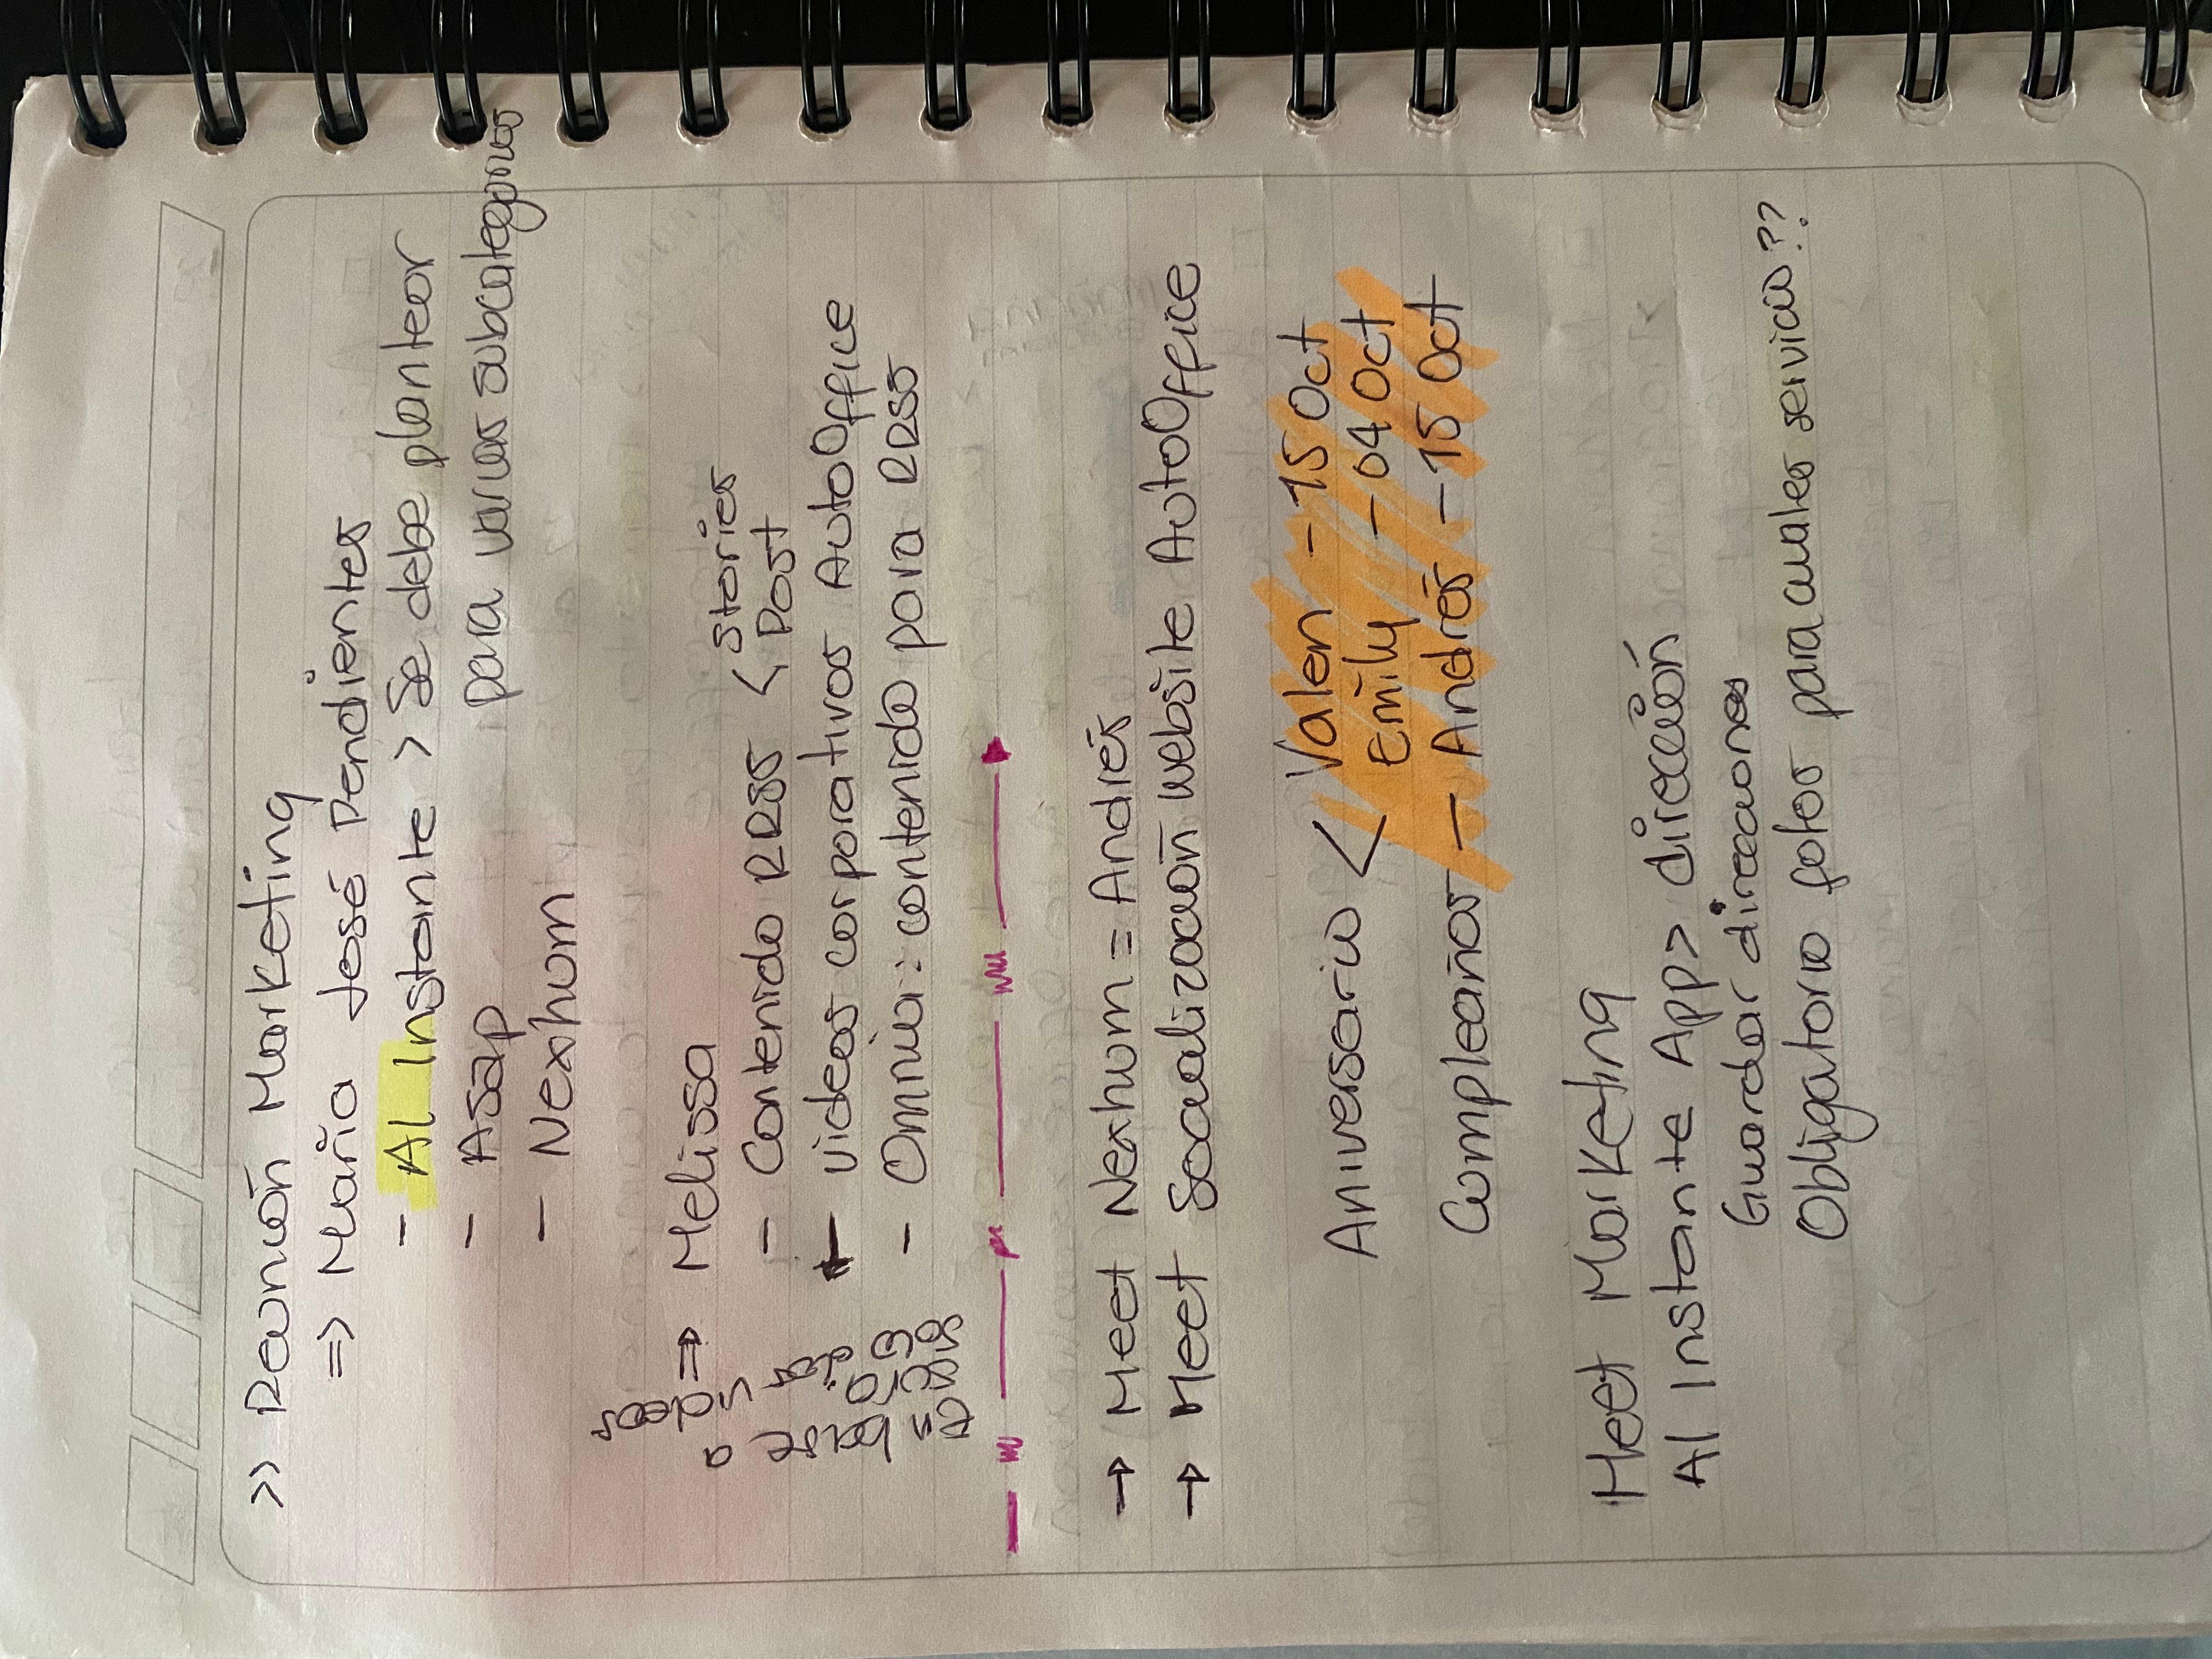 >> Reunión Marketing
=> María José Pendientes
- Al Instante > Se debe plantear
para varias subcategorias
- Asap
- Nexhum
=> Melissa
- Contenido RRSS < Stories
Post
- Videos corporativos AutoOffice
- Omnia: contenido para RRSS
→ Meet Nexhum = Andrés
→ Meet Socialización website AutoOffice
Aniversario < Valen - 15 Oct
Emily - 04 Oct
Cumpleaños - Andrés - 15 Oct
Meet Marketing
Al Instante App > dirección
Guardar direcciones
Obligatorio fotos para cuales servicio??